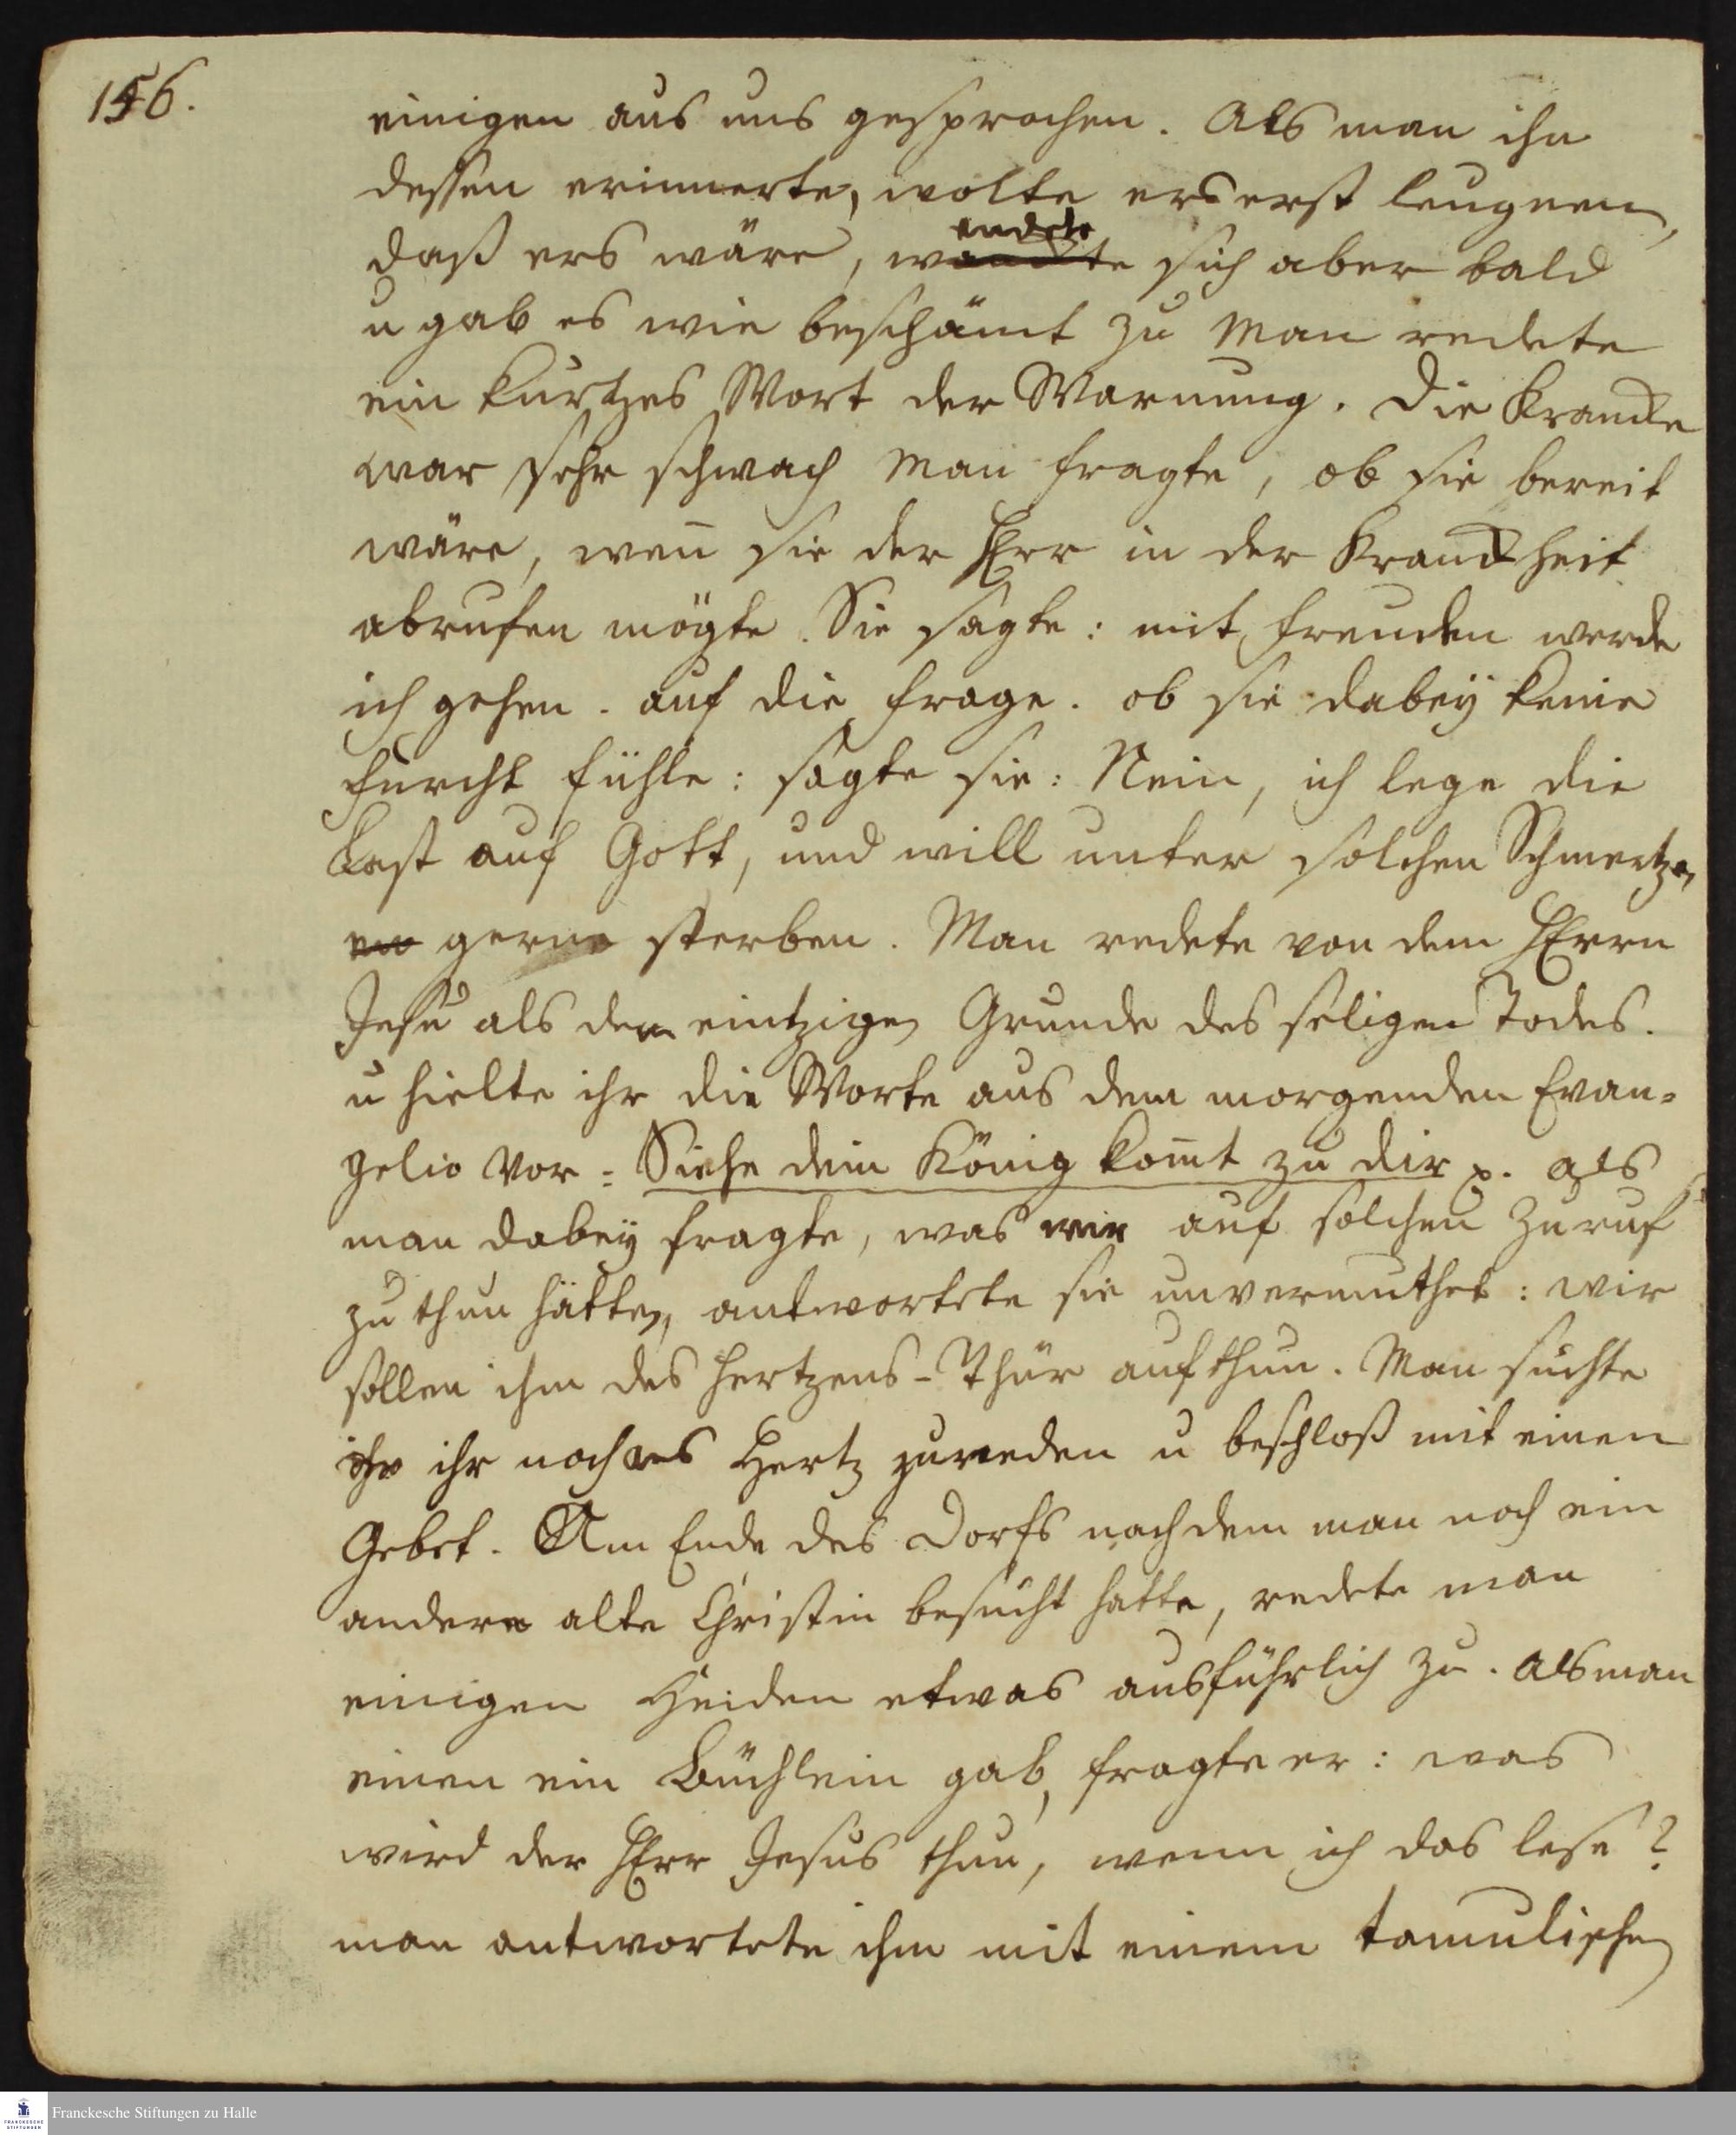 156.
einigen aus uns gesprochen. Als man ihn
dessen erinnerte, wolte ers erst leugnen,
daß ers wäre, wendete sich aber bald
u gab es wie beschämt zu Man redete
ein kurtzes Wort der Warnung. Die Krancke
war sehr schwach Man fragte, ob sie bereit
wäre, weñ sie der HErr in der Kranckheit
abrufen mögte. Sie sagte: mit Freuden werde
ich gehen. auf die Frage. ob sie dabeÿ keine
Furcht fühle: sagte sie: Nein, ich lege die
Last auf Gott, und will unter solchen Schmertzen
gerne sterben. Man redete von dem HErrn
Jesu als dem eintzigen Grunde des seligen Todes.
u hielte ihr die Worte aus dem morgenden Evan-
gelio vor: Siehe dein König kom̄t zu dir p. als
man dabeÿ fragte, was wir auf solchen Zuruf
zu thun hätten, antwortete sie unvermuthet: wir
sollen ihm des Hertzens-Thür aufthun. Man suchte
ihr noch ans Hertz zureden u beschloß mit einen
Gebet. Am Ende des Dorfs nachdem man noch ein
andere alte Christin besucht hatte, redete man
einigen Heiden etwas ausführlich zu. als man
einen ein Büchlein gab, fragte er: was
wird der HErr Jesus thun, wenn ich das lese?
man antwortete ihm mit einem tamulischen
Franckesche Stiftungen zu Halle